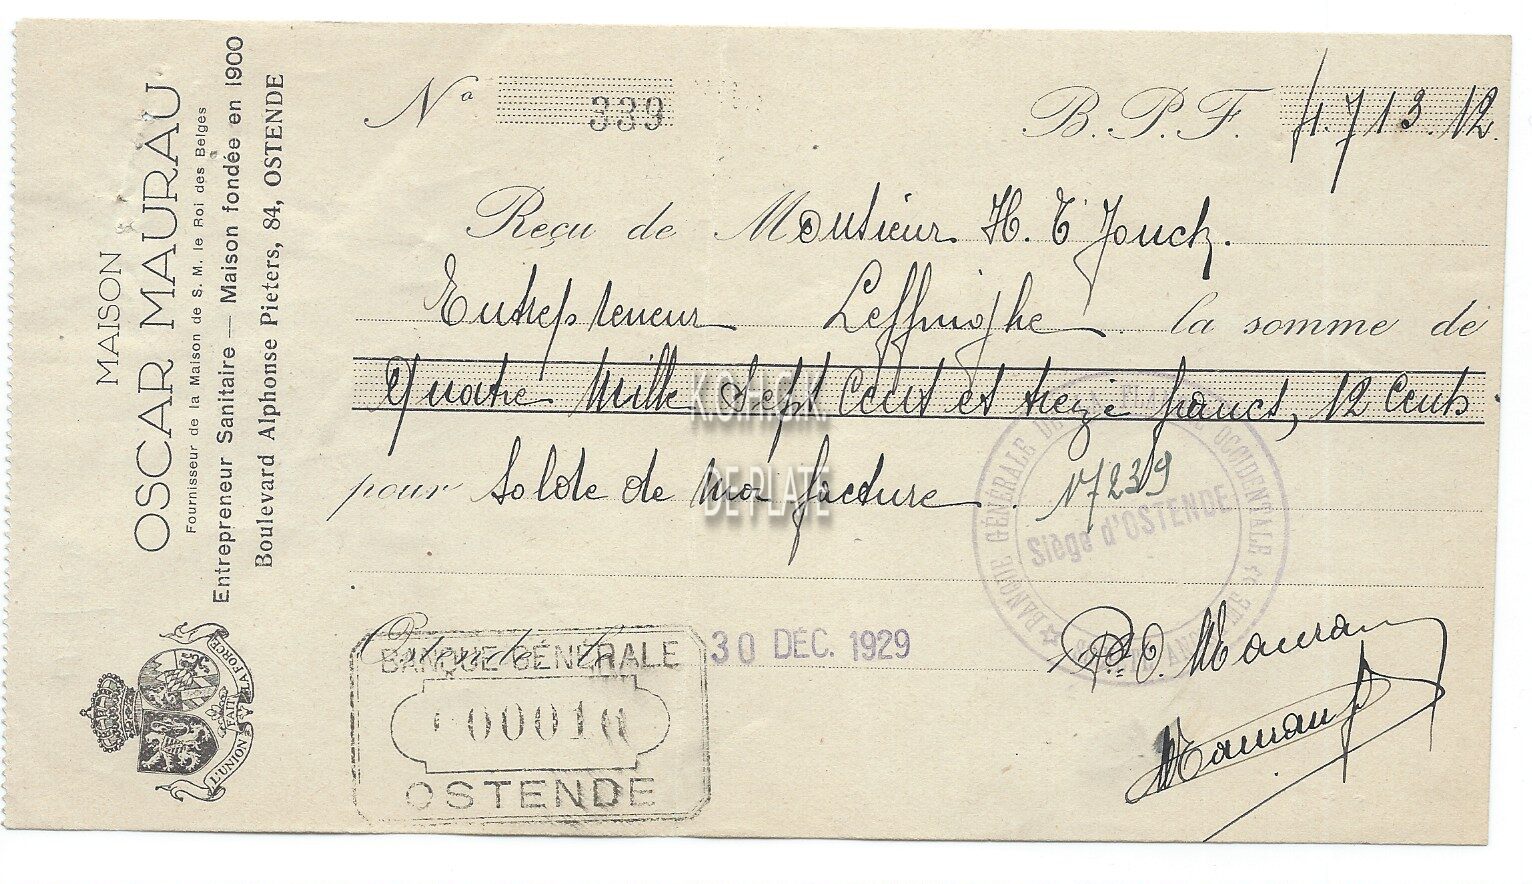 MAISON
OSCAR MAURAU
Fournisseur de la Maison de S. M. le Roi des Belges
Entrepreneur Sanitaire — Maison fondée en 1900
Boulevard Alphonse Pieters, 84, OSTENDE
L'UNION FAIT LA FORCE
Nº 339
B. P. F. 4.713.12.
Reçu de Monsieur H. T'Jonck.
Entrepreneur Leffinghe la somme de
Quatre Mille Sept Cent et treize francs, 12 Cents
pour Solde de ma facture. N 7239
K.O.H.G.K.
DE PLATE
BANQUE GÉNÉRALE DE LA FLANDRE OCCIDENTALE
Siège d'OSTENDE
Ostende le 30 DÉC. 1929
BANQUE GÉNÉRALE
00010
OSTENDE
O. Maurau
Maurau